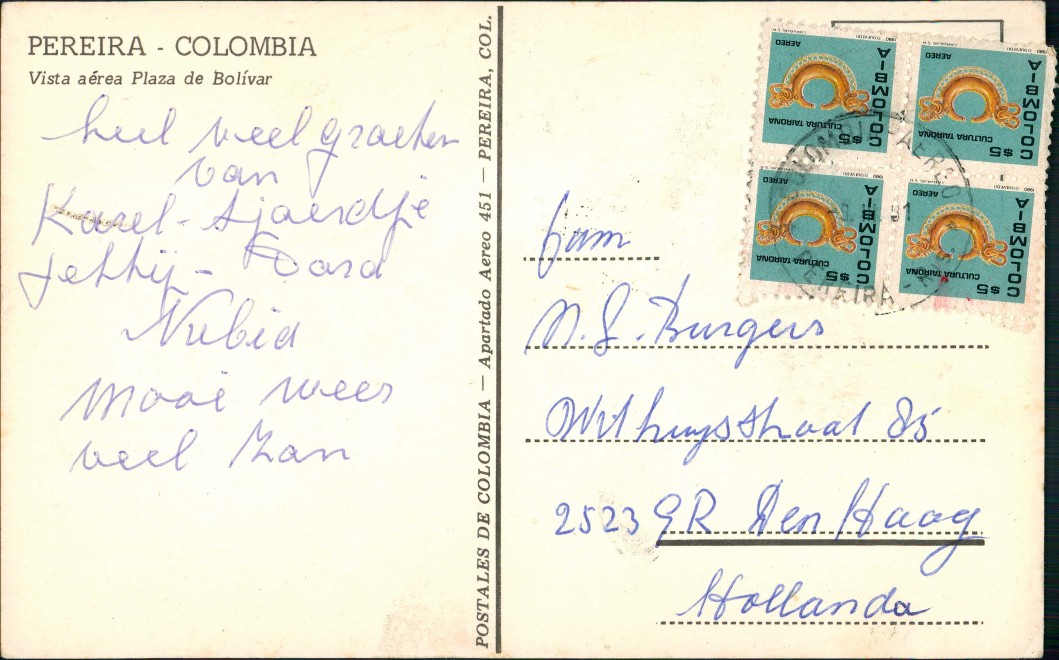 PEREIRA - COLOMBIA
Vista aérea Plaza de Bolívar
heel veel groeten
van
Karel - Sjoerdje
Jethij - Doara
Nubia
Mooi weer
veel zon
POSTALES DE COLOMBIA — Apartado Aereo 451 — PEREIRA, COL.
COLOMBIA
AEREO
CULTURA TAIRONA
$5
COLOMBIA
AEREO
CULTURA TAIRONA
$5
COLOMBIA
AEREO
CULTURA TAIRONA
$5
COLOMBIA
AEREO
CULTURA TAIRONA
$5
fam
N. G. Burgers
Withuysstraat 85
2523 GR Den Haag
Hollanda